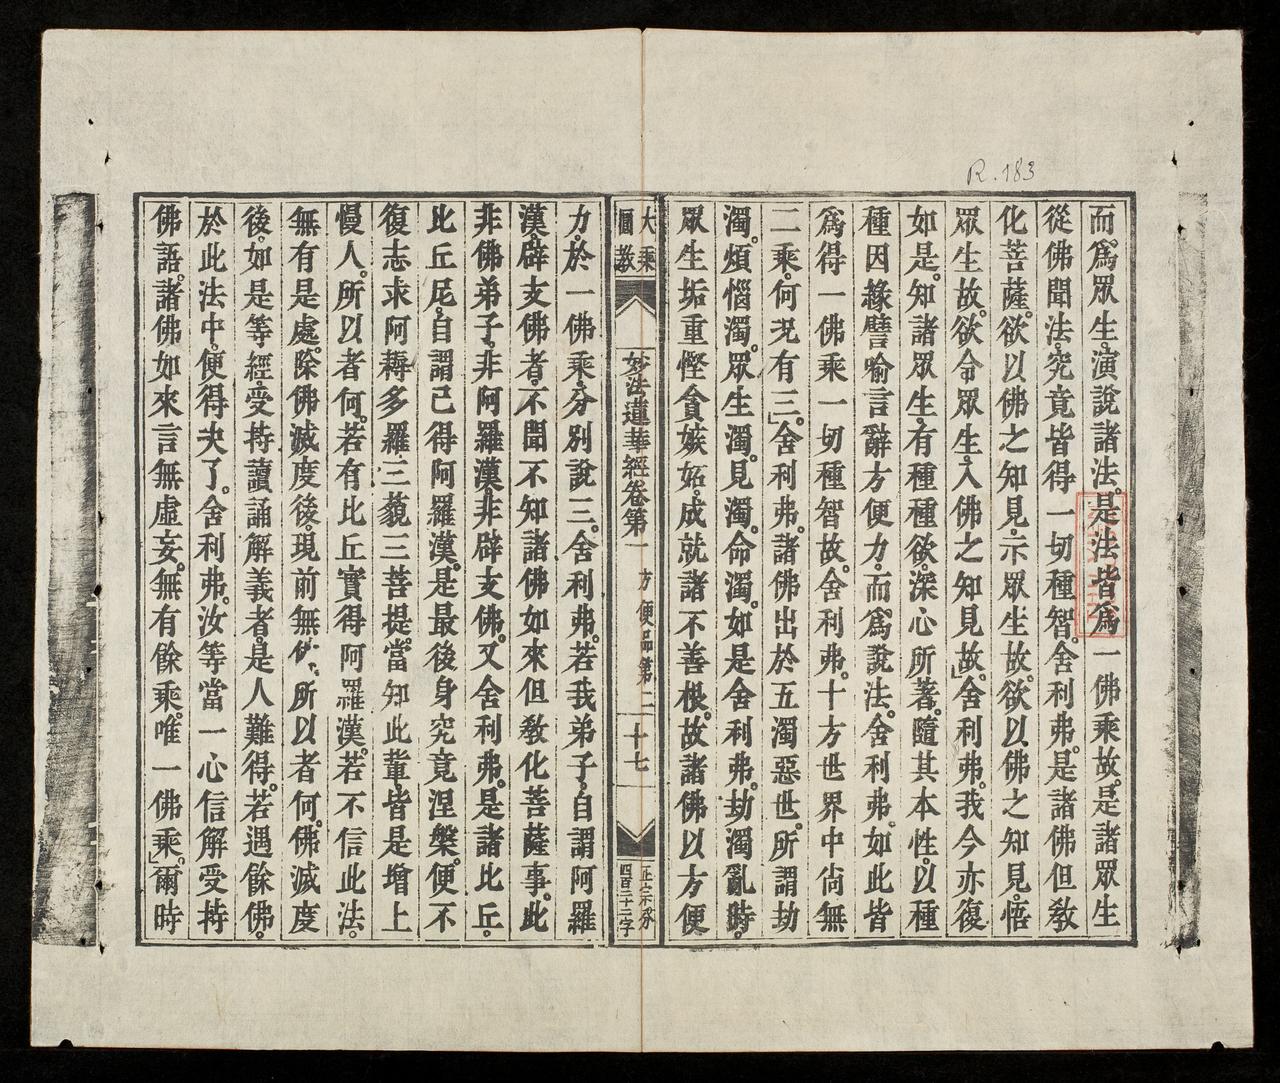 R.183
而。爲眾生。演說諸法。是法皆爲一佛乘故。是諸眾生
從佛聞法。究竟皆得一切種智。舍利弗。是諸佛但敎
化菩薩。欲以佛之知見。示眾生故。欲以佛之知見。悟
眾生故。欲令眾生。入佛之知見故」。舍利弗。我今亦復
如是。知諸眾生。有種種欲。深心所著。隨其本性。以種
種因緣譬喻言辭方便力。而。爲說法。舍利弗。如此皆
爲得一佛乘一切種智故。舍利弗。十方世界中尙無
二乘。何況有三」。舍利弗。諸佛出於五濁惡世。所謂劫
濁。煩惱濁。眾生濁。見濁。命濁。如是舍利弗。劫濁亂時。
眾生垢重慳貪嫉妬。成就諸不善根。故諸佛以方便
大乘
圓敎
妙法蓮華經卷第一 方便品第二 十七
正宗分
四百二十二字
力。於一佛乘。分別說三。舍利弗。若我弟子。自謂阿羅
漢。辟支佛者。不聞不知諸佛如來但敎化菩薩事。此
非佛弟子。非阿羅漢。非辟支佛。又舍利弗。是諸比丘。
比丘尼。自謂已得阿羅漢。是最後身究竟涅槃。便不
復志求阿耨多羅三藐三菩提。當知此輩。皆是增上
慢人。所以者何。若有比丘實得阿羅漢。若不信此法。
無有是處。除佛滅度後。現前無佛。所以者何。佛滅度
後。如是等經。受持讀誦解義者。是人難得。若遇餘佛。
於此法中。便得決了。舍利弗。汝等當一心信解受持
佛語。諸佛如來言無虛妄。無有餘乘。唯一佛乘」。爾時